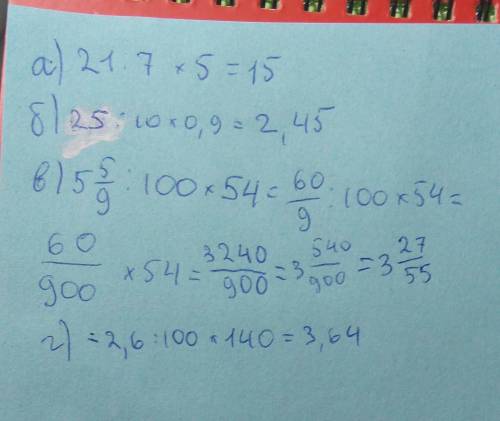 а) 21 : 7 × 5 = 15
б) 25 : 10 × 0,9 = 2,45
в) 5 5/9 : 100 × 54 = 60/9 : 100 × 54 =
60/900 × 54 = 3240/900 = 3 540/900 = 3 27/55
г) = 2,6 : 100 × 140 = 3,64